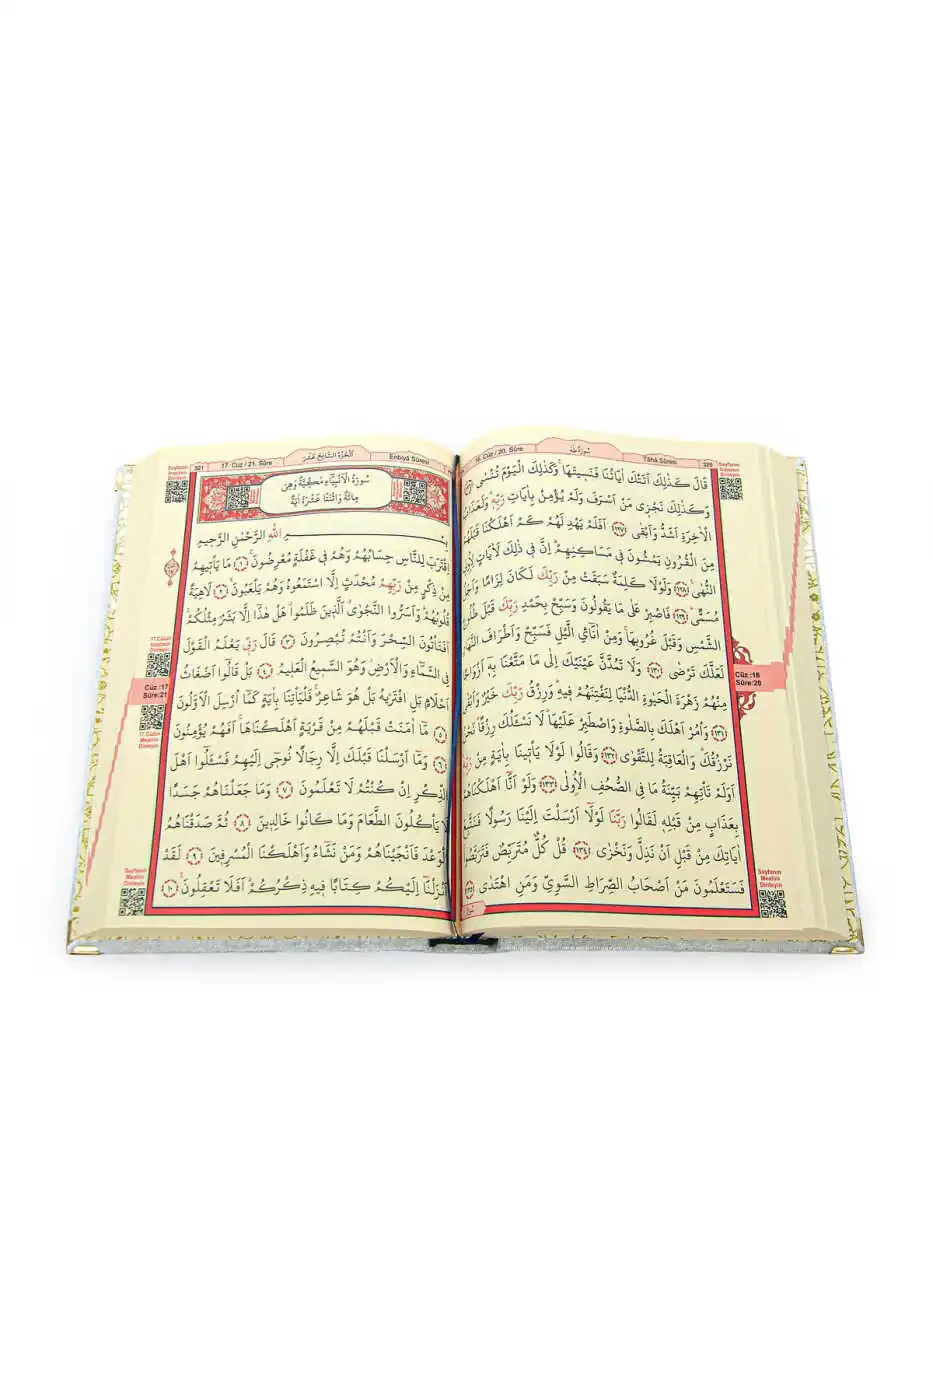 سُورَةُ طٰهٰ
320
Tâhâ Sûresi
16. Cüz / 20. Sûre
قَالَ كَذٰلِكَ اَتَتْكَ اٰيَاتُنَا فَنَسٖيتَهَاۚ وَكَذٰلِكَ الْيَوْمَ تُنْسٰى
وَكَذٰلِكَ نَجْزٖي مَنْ اَسْرَفَ وَلَمْ يُؤْمِنْ بِاٰيَاتِ رَبِّهٖۜ وَلَعَذَابُ
الْاٰخِرَةِ اَشَدُّ وَاَبْقٰى ﴿١٢٧﴾ اَفَلَمْ يَهْدِ لَهُمْ كَمْ اَهْلَكْنَا قَبْلَهُمْ
مِنَ الْقُرُونِ يَمْشُونَ فٖي مَسَاكِنِهِمْۜ اِنَّ فٖي ذٰلِكَ لَاٰيَاتٍ لِاُولِي
النُّهٰى ﴿١٢٨﴾ وَلَوْلَا كَلِمَةٌ سَبَقَتْ مِنْ رَبِّكَ لَكَانَ لِزَامًا وَاَجَلٌ
مُسَمًّىۜ ﴿١٢٩﴾ فَاصْبِرْ عَلٰى مَا يَقُولُونَ وَسَبِّحْ بِحَمْدِ رَبِّكَ قَبْلَ طُلُوعِ
الشَّمْسِ وَقَبْلَ غُرُوبِهَاۚ وَمِنْ اٰنَٓائِ الَّيْلِ فَسَبِّحْ وَاَطْرَافَ النَّهَارِ
لَعَلَّكَ تَرْضٰى ﴿١٣٠﴾ وَلَا تَمُدَّنَّ عَيْنَيْكَ اِلٰى مَا مَتَّعْنَا بِهٖٓ اَزْوَاجًا
مِنْهُمْ زَهْرَةَ الْحَيٰوةِ الدُّنْيَا لِنَفْتِنَهُمْ فٖيهِۜ وَرِزْقُ رَبِّكَ خَيْرٌ وَاَبْقٰى
﴿١٣١﴾ وَأْمُرْ اَهْلَكَ بِالصَّلٰوةِ وَاصْطَبِرْ عَلَيْهَاۜ لَا نَسْـَٔلُكَ رِزْقًاۜ نَحْنُ
نَرْزُقُكَۜ وَالْعَاقِبَةُ لِلتَّقْوٰى ﴿١٣٢﴾ وَقَالُوا لَوْلَا يَأْتٖينَا بِاٰيَةٍ مِنْ رَبِّهٖۜ
اَوَلَمْ تَأْتِهِمْ بَيِّنَةُ مَا فِي الصُّحُفِ الْاُولٰى ﴿١٣٣﴾ وَلَوْ اَنَّٓا اَهْلَكْنَاهُمْ
بِعَذَابٍ مِنْ قَبْلِهٖ لَقَالُوا رَبَّنَا لَوْلَٓا اَرْسَلْتَ اِلَيْنَا رَسُولًا فَنَتَّبِعَ
اٰيَاتِكَ مِنْ قَبْلِ اَنْ نَذِلَّ وَنَخْزٰى ﴿١٣٤﴾ قُلْ كُلٌّ مُتَرَبِّصٌ فَتَرَبَّصُواۚ
فَسَتَعْلَمُونَ مَنْ اَصْحَابُ الصِّرَاطِ السَّوِيِّ وَمَنِ اهْتَدٰى ﴿١٣٥﴾
Cüz :16
Sûre:20
Sayfanın
Mealini
Dinleyin
321
17. Cüz / 21. Sûre
اَلْجُزْءُ السَّابِعَ عَشَرَ
Enbiyâ Sûresi
سُورَةُ الْاَنْبِيَٓاءِ مَكِّيَّةٌ وَهِيَ
مِائَةٌ وَاثْنَتَا عَشْرَةَ اٰيَةً
بِسْمِ اللّٰهِ الرَّحْمٰنِ الرَّحٖيمِ
اِقْتَرَبَ لِلنَّاسِ حِسَابُهُمْ وَهُمْ فٖي غَفْلَةٍ مُعْرِضُونَۚ ﴿١﴾ مَا يَأْتٖيهِمْ
مِنْ ذِكْرٍ مِنْ رَبِّهِمْ مُحْدَثٍ اِلَّا اسْتَمَعُوهُ وَهُمْ يَلْعَبُونَۙ ﴿٢﴾ لَاهِيَةً
قُلُوبُهُمْۜ وَاَسَرُّوا النَّجْوٰىۗ اَلَّذٖينَ ظَلَمُواۗ هَلْ هٰذَٓا اِلَّا بَشَرٌ مِثْلُكُمْۚ
اَفَتَأْتُونَ السِّحْرَ وَاَنْتُمْ تُبْصِرُونَ ﴿٣﴾ قَالَ رَبّٖي يَعْلَمُ الْقَوْلَ
فِي السَّمَٓاءِ وَالْاَرْضِۘ وَهُوَ السَّمٖيعُ الْعَلٖيمُ ﴿٤﴾ بَلْ قَالُٓوا اَضْغَاثُ
اَحْلَامٍ بَلِ افْتَرٰيهُ بَلْ هُوَ شَاعِرٌۚ فَلْيَأْتِنَا بِاٰيَةٍ كَمَٓا اُرْسِلَ الْاَوَّلُونَ
﴿٥﴾ مَٓا اٰمَنَتْ قَبْلَهُمْ مِنْ قَرْيَةٍ اَهْلَكْنَاهَاۚ اَفَهُمْ يُؤْمِنُونَ
﴿٦﴾ وَمَٓا اَرْسَلْنَا قَبْلَكَ اِلَّا رِجَالًا نُوحٖٓي اِلَيْهِمْ فَسْـَٔلُٓوا اَهْلَ
الذِّكْرِ اِنْ كُنْتُمْ لَا تَعْلَمُونَ ﴿٧﴾ وَمَا جَعَلْنَاهُمْ جَسَدًا
لَا يَأْكُلُونَ الطَّعَامَ وَمَا كَانُوا خَالِدٖينَ ﴿٨﴾ ثُمَّ صَدَقْنَاهُمُ
الْوَعْدَ فَاَنْجَيْنَاهُمْ وَمَنْ نَشَٓاءُ وَاَهْلَكْنَا الْمُسْرِفٖينَ ﴿٩﴾ لَقَدْ
اَنْزَلْنَٓا اِلَيْكُمْ كِتَابًا فٖيهِ ذِكْرُكُمْۜ اَفَلَا تَعْقِلُونَ۟ ﴿١٠﴾
Cüz :17
Sûre:21
17.Cüzün
Mealini
Dinleyin
Sayfanın
Mealini
Dinleyin